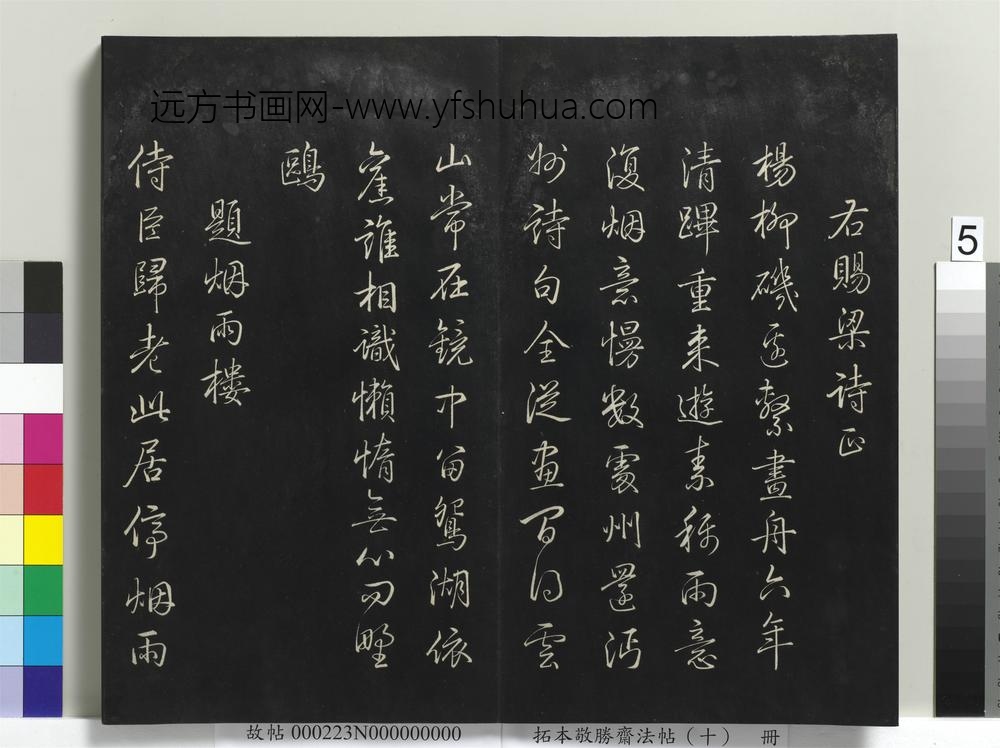 远方书画网-www.yfshuhua.com
右賜梁詩正
楊柳磯邊繫畫舟六年
清蹕重来遊素稱雨意
復烟意慢數州還沔
州詩句全從畫間得雲
山常在鏡中留鴛湖依
舊誰相識懶惰無心野
鷗
題烟雨樓
侍臣歸老此居停烟雨
5
故帖 000223N000000000
拓本敬勝齋法帖（十） 冊